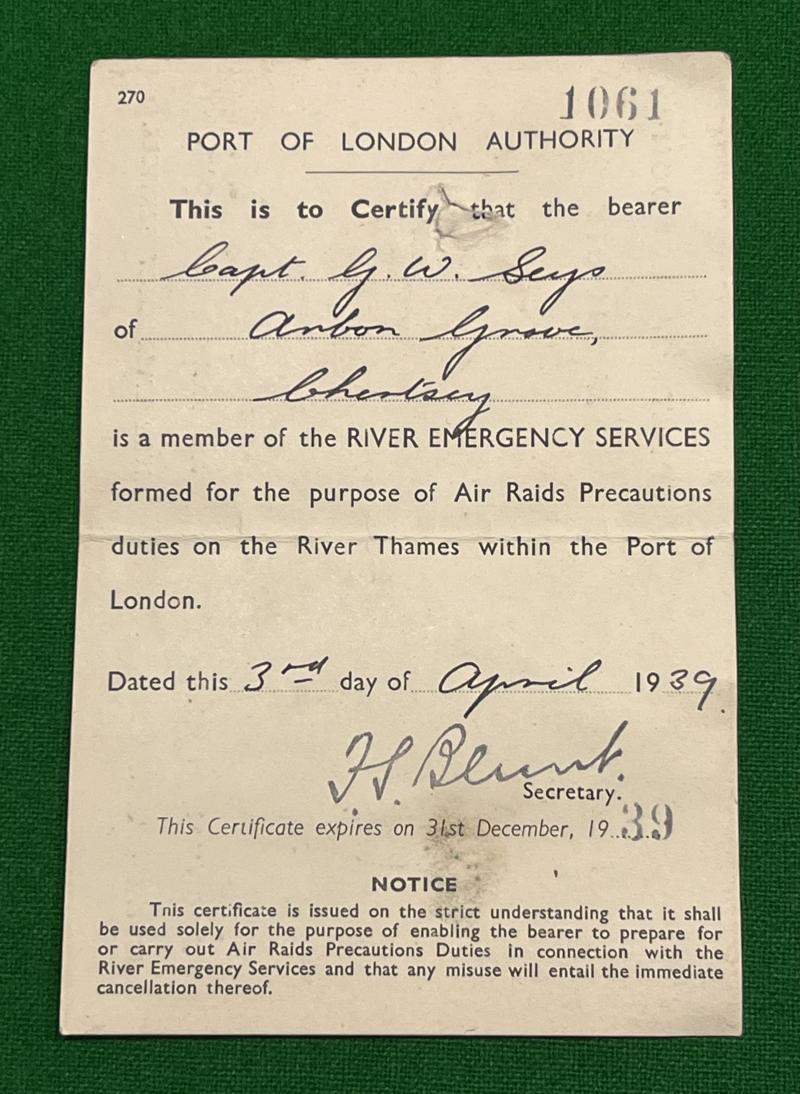 270
1061
PORT OF LONDON AUTHORITY
This is to Certify that the bearer
Capt. G. W. Seys
of Anbon Grove,
Chertsey
is a member of the RIVER EMERGENCY SERVICES
formed for the purpose of Air Raids Precautions
duties on the River Thames within the Port of
London.
Dated this 3rd day of April 1939.
F. S. Blunt.
Secretary.
This Certificate expires on 31st December, 1939
NOTICE
This certificate is issued on the strict understanding that it shall
be used solely for the purpose of enabling the bearer to prepare for
or carry out Air Raids Precautions Duties in connection with the
River Emergency Services and that any misuse will entail the immediate
cancellation thereof.